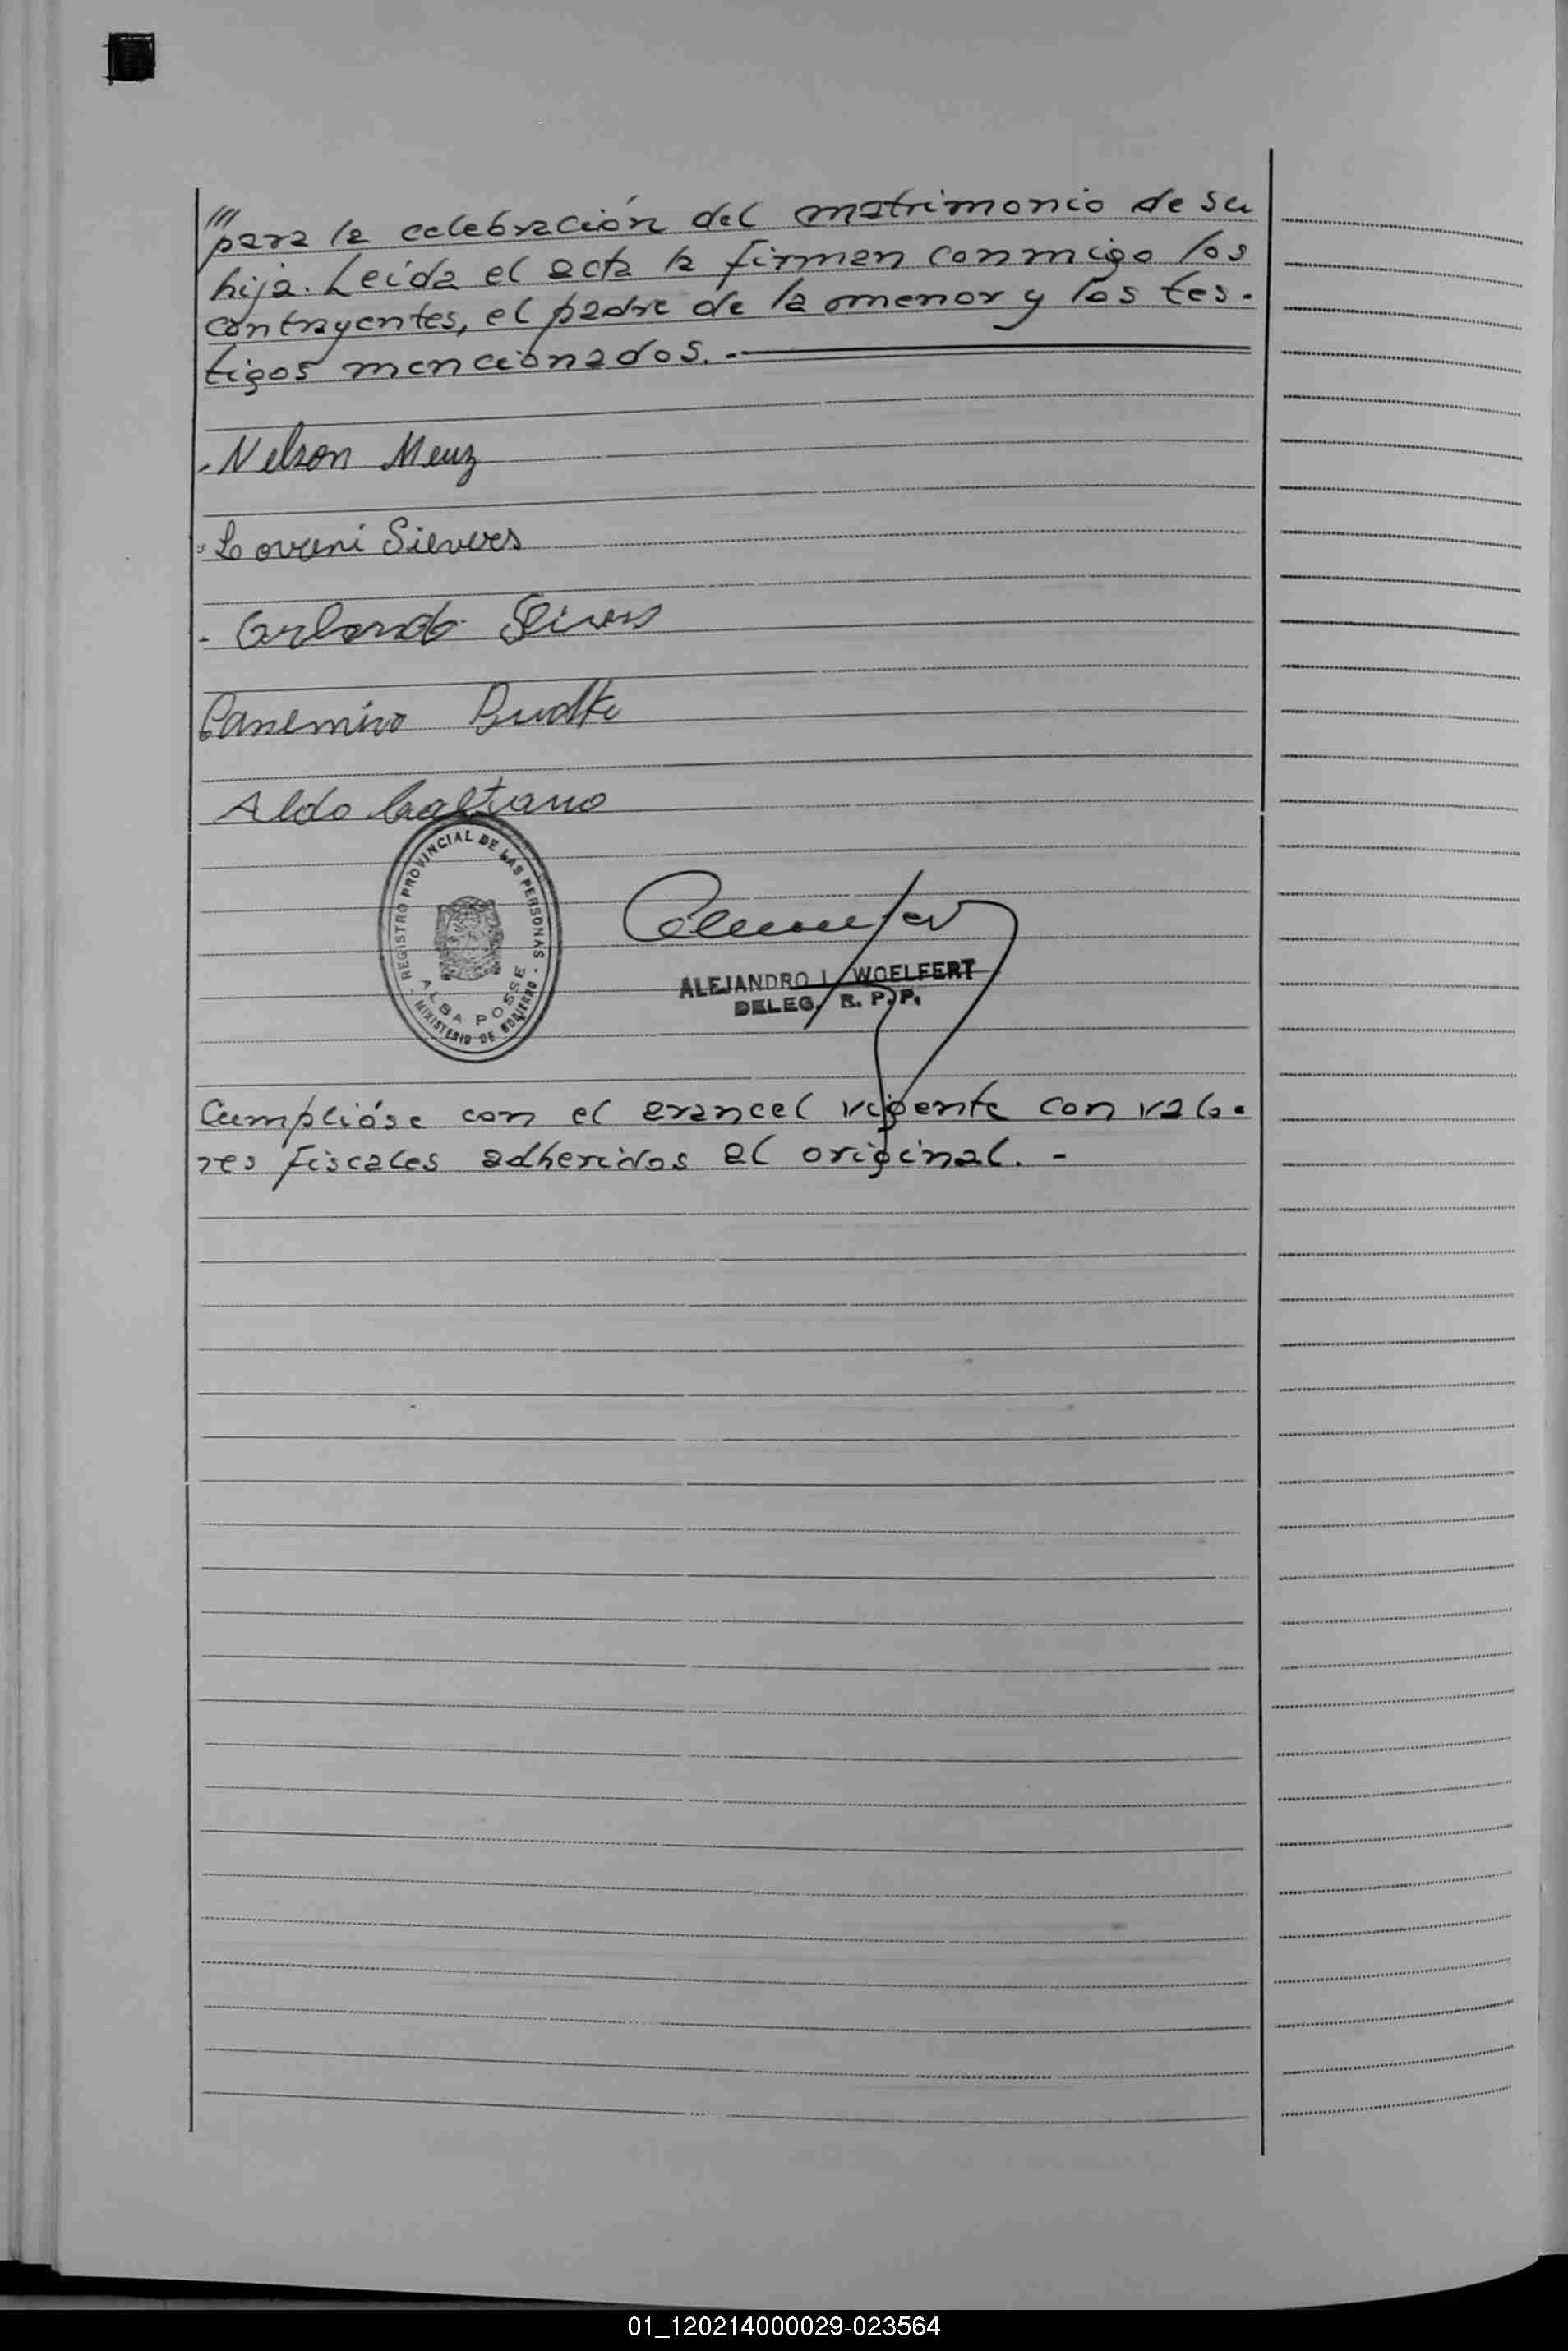 /// para la celebración del matrimonio de su
hija. Leída el acta la firman conmigo los
contrayentes, el padre de la menor y los tes-
tigos mencionados. -
- Nelson Menz
- Loveni Sieveres
- Orlando
Casemiro
Aldo Caetano
REGISTRO PROVINCIAL DE LAS PERSONAS
ALBA POSSE
MINISTERIO DE GOBIERNO
ALEJANDRO L. WOELFERT
DELEG. R. P. P.
Cumplióse con el arancel vigente con valo-
res fiscales adheridos al original. -
01_120214000029-023564